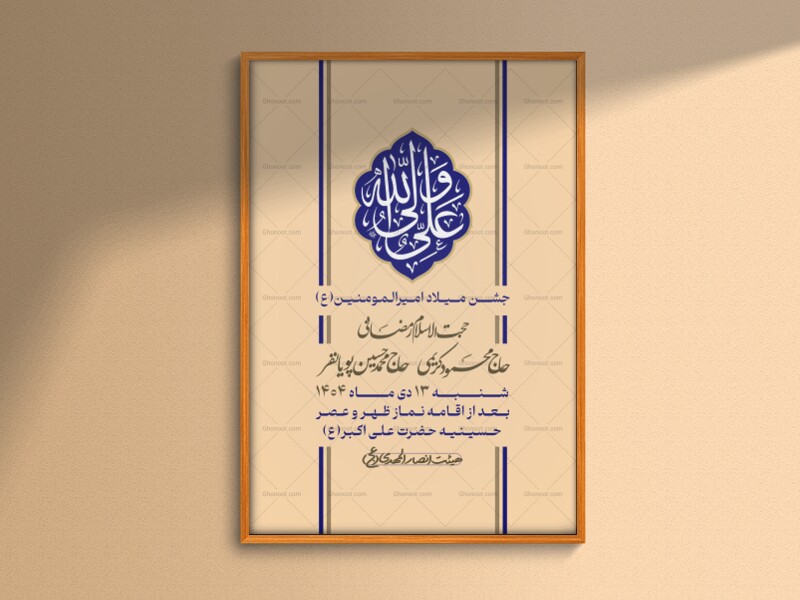 علی ولی الله
جشن میلاد امیرالمومنین(ع)
حجت الاسلام رمضانی
حاج محمود کریمی حاج محمدحسین پویانفر
شنبه ۱۳ دی ماه ۱۴۰۴
بعد از اقامه نماز ظهر و عصر
حسینیه حضرت علی اکبر(ع)
هیئت انصار المهدی (عج)
Ghonoot.com